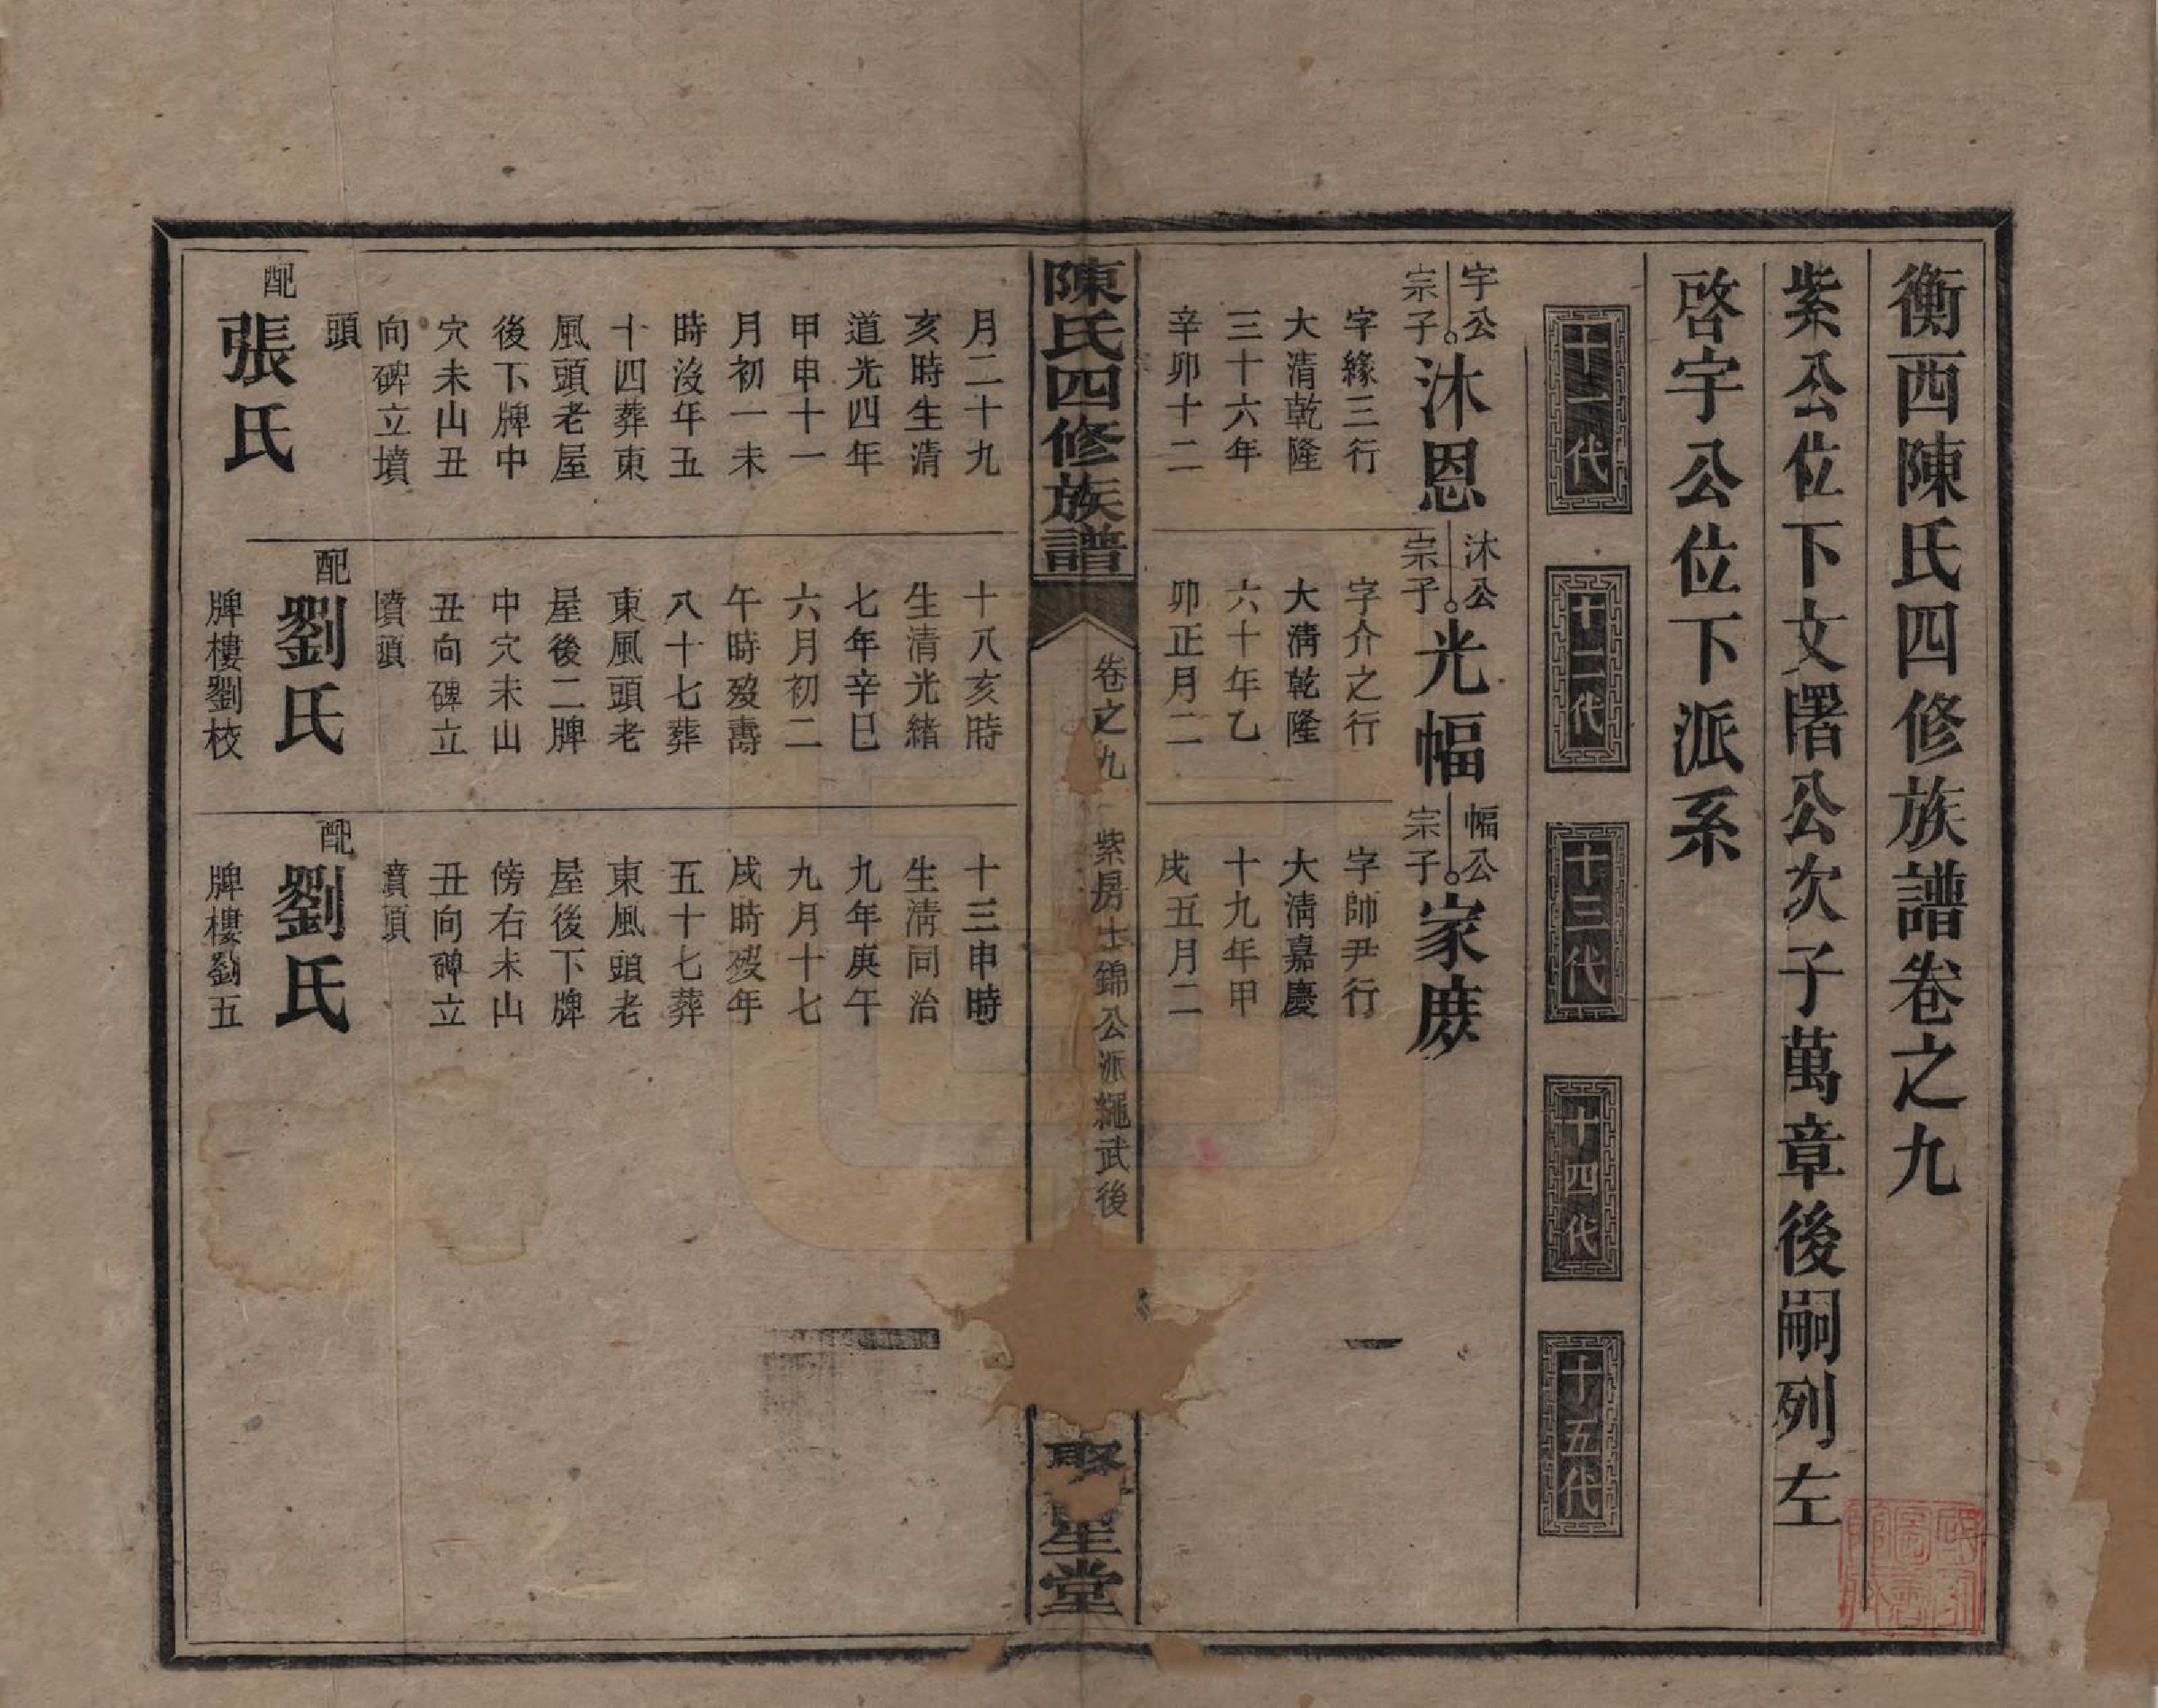 衡西陳氏四修族譜卷之九
紫公位下文闍公次子萬章後嗣列左
啓宇公位下派系
十一代
十二代
十三代
十四代
十五代
宇公宗子
沐恩
字緣三行
大清乾隆
三十六年
辛卯十二
月二十九
亥時生清
道光四年
甲申十一
月初一未
時沒年五
十四葬東
風頭老屋
後下牌中
穴未山丑
向碑立墳
頭
配
張氏
沐公宗子
光幅
字介之行
大清乾隆
六十年乙
卯正月二
十八亥時
生清光緒
七年辛巳
六月初二
午時歿壽
八十七葬
東風頭老
屋後二牌
中穴未山
丑向碑立
墳頭
配
劉氏
牌樓劉校
幅公宗子
家庻
字師尹行
大清嘉慶
十九年甲
戌五月二
十三申時
生清同治
九年庚午
九月十七
戌時歿年
五十七葬
東風頭老
屋後下牌
傍右未山
丑向碑立
墳頭
配
劉氏
牌樓劉五
陳氏四修族譜
卷之九
紫房士錦公派繩武後
聚星堂